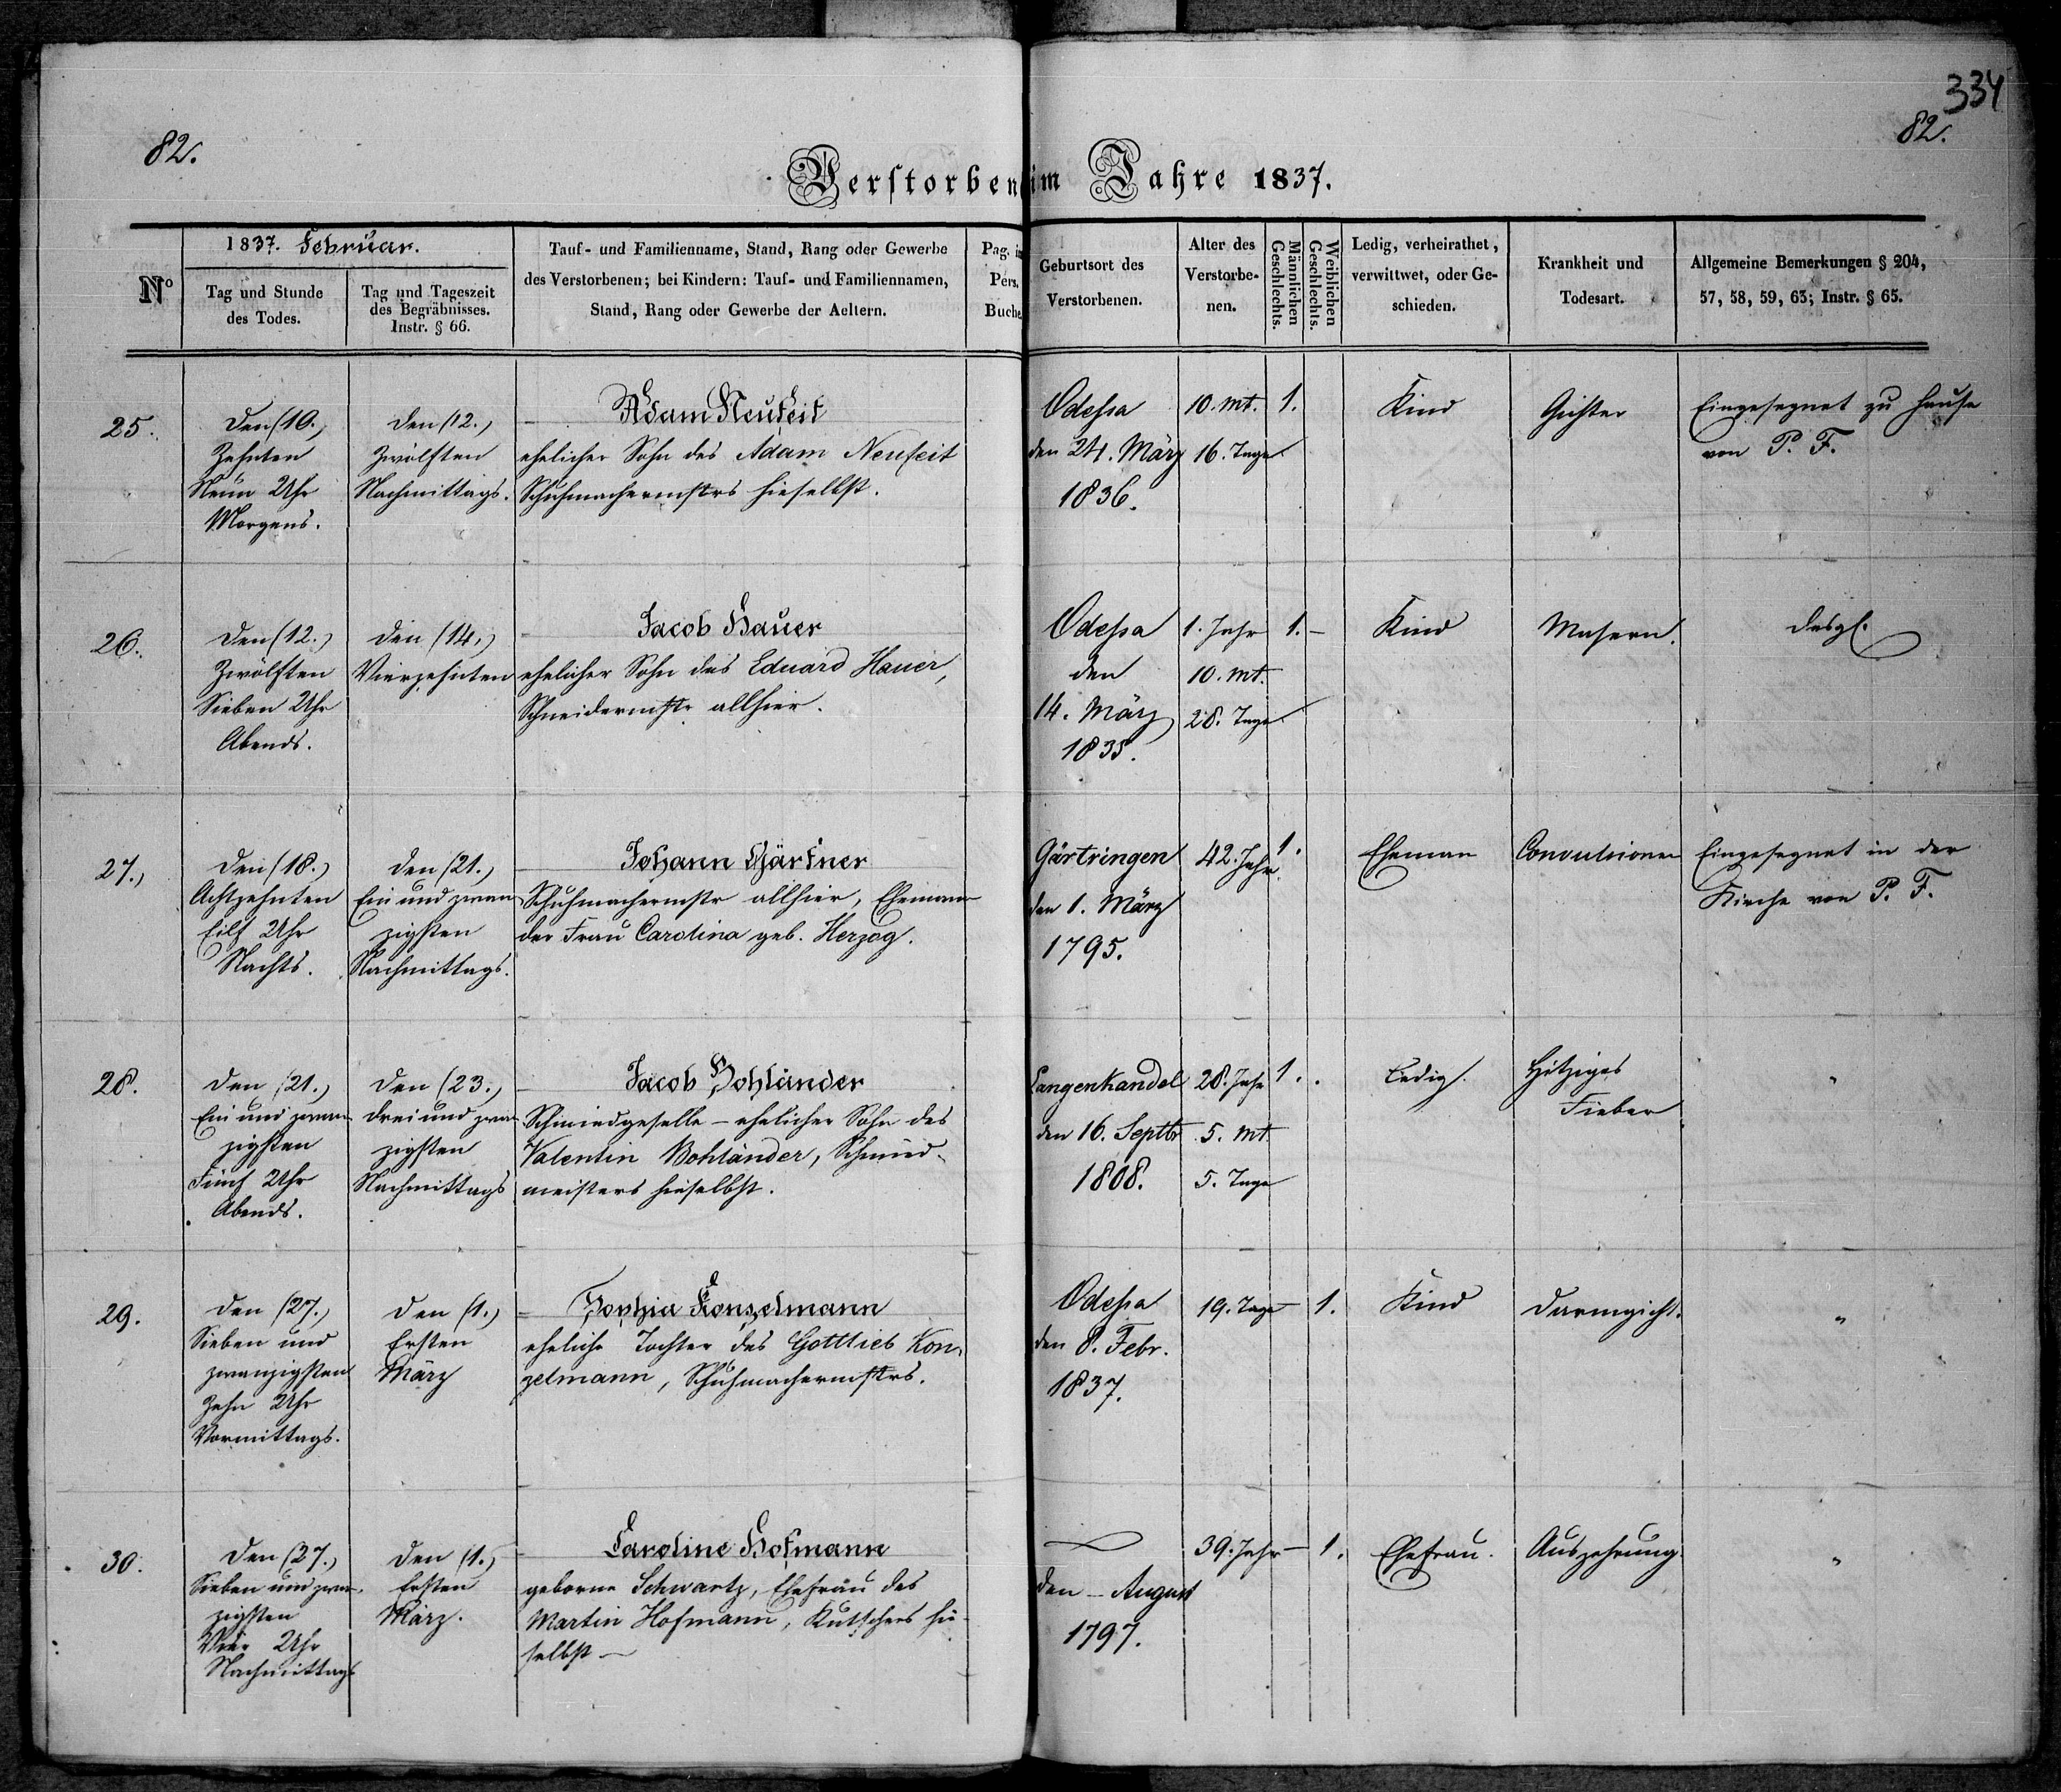 334
82.
82.
Verstorben im Jahre 1837.
No
1837. Februar.
Tag und Stunde
des Todes.
Tag und Tageszeit
des Begräbnisses.
Instr. § 66.
Tauf- und Familienname, Stand, Rang oder Gewerbe
des Verstorbenen; bei Kindern: Tauf- und Familiennamen,
Stand, Rang oder Gewerbe der Aeltern.
Pag. in
Pers.
Buche
Geburtsort des
Verstorbenen.
Alter des
Verstorbe-
nen.
Männlichen
Geschlechts.
Weiblichen
Geschlechts.
Ledig, verheirathet,
verwittwet, oder Ge-
schieden.
Krankheit und
Todesart.
Allgemeine Bemerkungen § 204,
57, 58, 59, 63; Instr. § 65.
25.
Den (10.)
Zehnten
Neun Uhr
Morgens.
den (12.)
Zwölften
Nachmittags.
Adam Neufeit
ehelicher Sohn des Adam Neufeit
Schuhmachermstrs hieselbst.
Odessa
den 24. März
1836.
10. mt.
16. Tage
1.
Kind
Gichter
Eingesegnet zu Hause
von P. F.
26.
Den (12.)
Zwölften
Sieben Uhr
Abends.
den (14.)
Vierzehnten
Jacob Hauer
ehelicher Sohn des Eduard Hauer,
Schneidermstr allhier.
Odessa
den
14. März
1835.
1. Jahr
10. mt.
28. Tage
1. -
Kind
Masern.
desgl.
27.
Den (18.)
Achtzehnten
Eilf Uhr
Nachts.
den (21.)
Ein und zwan
zigsten
Nachmittags.
Johann Gärtner
Schuhmachermstr allhier, Ehemann
der Frau Carolina geb. Herzog.
Gärtringen
den 1. März
1795.
42. Jahr.
1.
Eheman
Convulsionen
Eingesegnet in der
Kirche von P. F.
28.
Den (21.)
Ein und zwan
zigsten
Fünf Uhr
Abends.
Den (23.)
Drei und zwan
zigsten
Nachmittags
Jacob Bohländer
Schmiedgeselle - ehelicher Sohn des
Valentin Bohländer, Schmied-
meisters hieselbst.
Langenkandel
den 16. Septbr
1808.
28. Jahr
5. mt.
5. Tage
1.
Ledig.
Hitziges
Fieber
"
29.
Den (27.)
Sieben und
zwanzigsten
Zehn Uhr
Vormittags.
Den (1.)
Ersten
März
Sophia Konzelmann
eheliche Tochter des Gottlieb Kon-
zelmann, Schuhmachermstrs.
Odessa
den 8. Febr.
1837.
19. Tage
- 1.
Kind
Darmgicht.
"
30.
Den (27.)
Sieben und zwan-
zigsten
Vier Uhr
Nachmittags
Den (1.)
Ersten
März.
Caroline Hofmann
geborne Schwartz, Ehefrau des
Martin Hofmann, Kutschers hie-
selbst -
den - August
1797.
39. Jahr
- 1.
Ehefrau.
Auszehrung
"